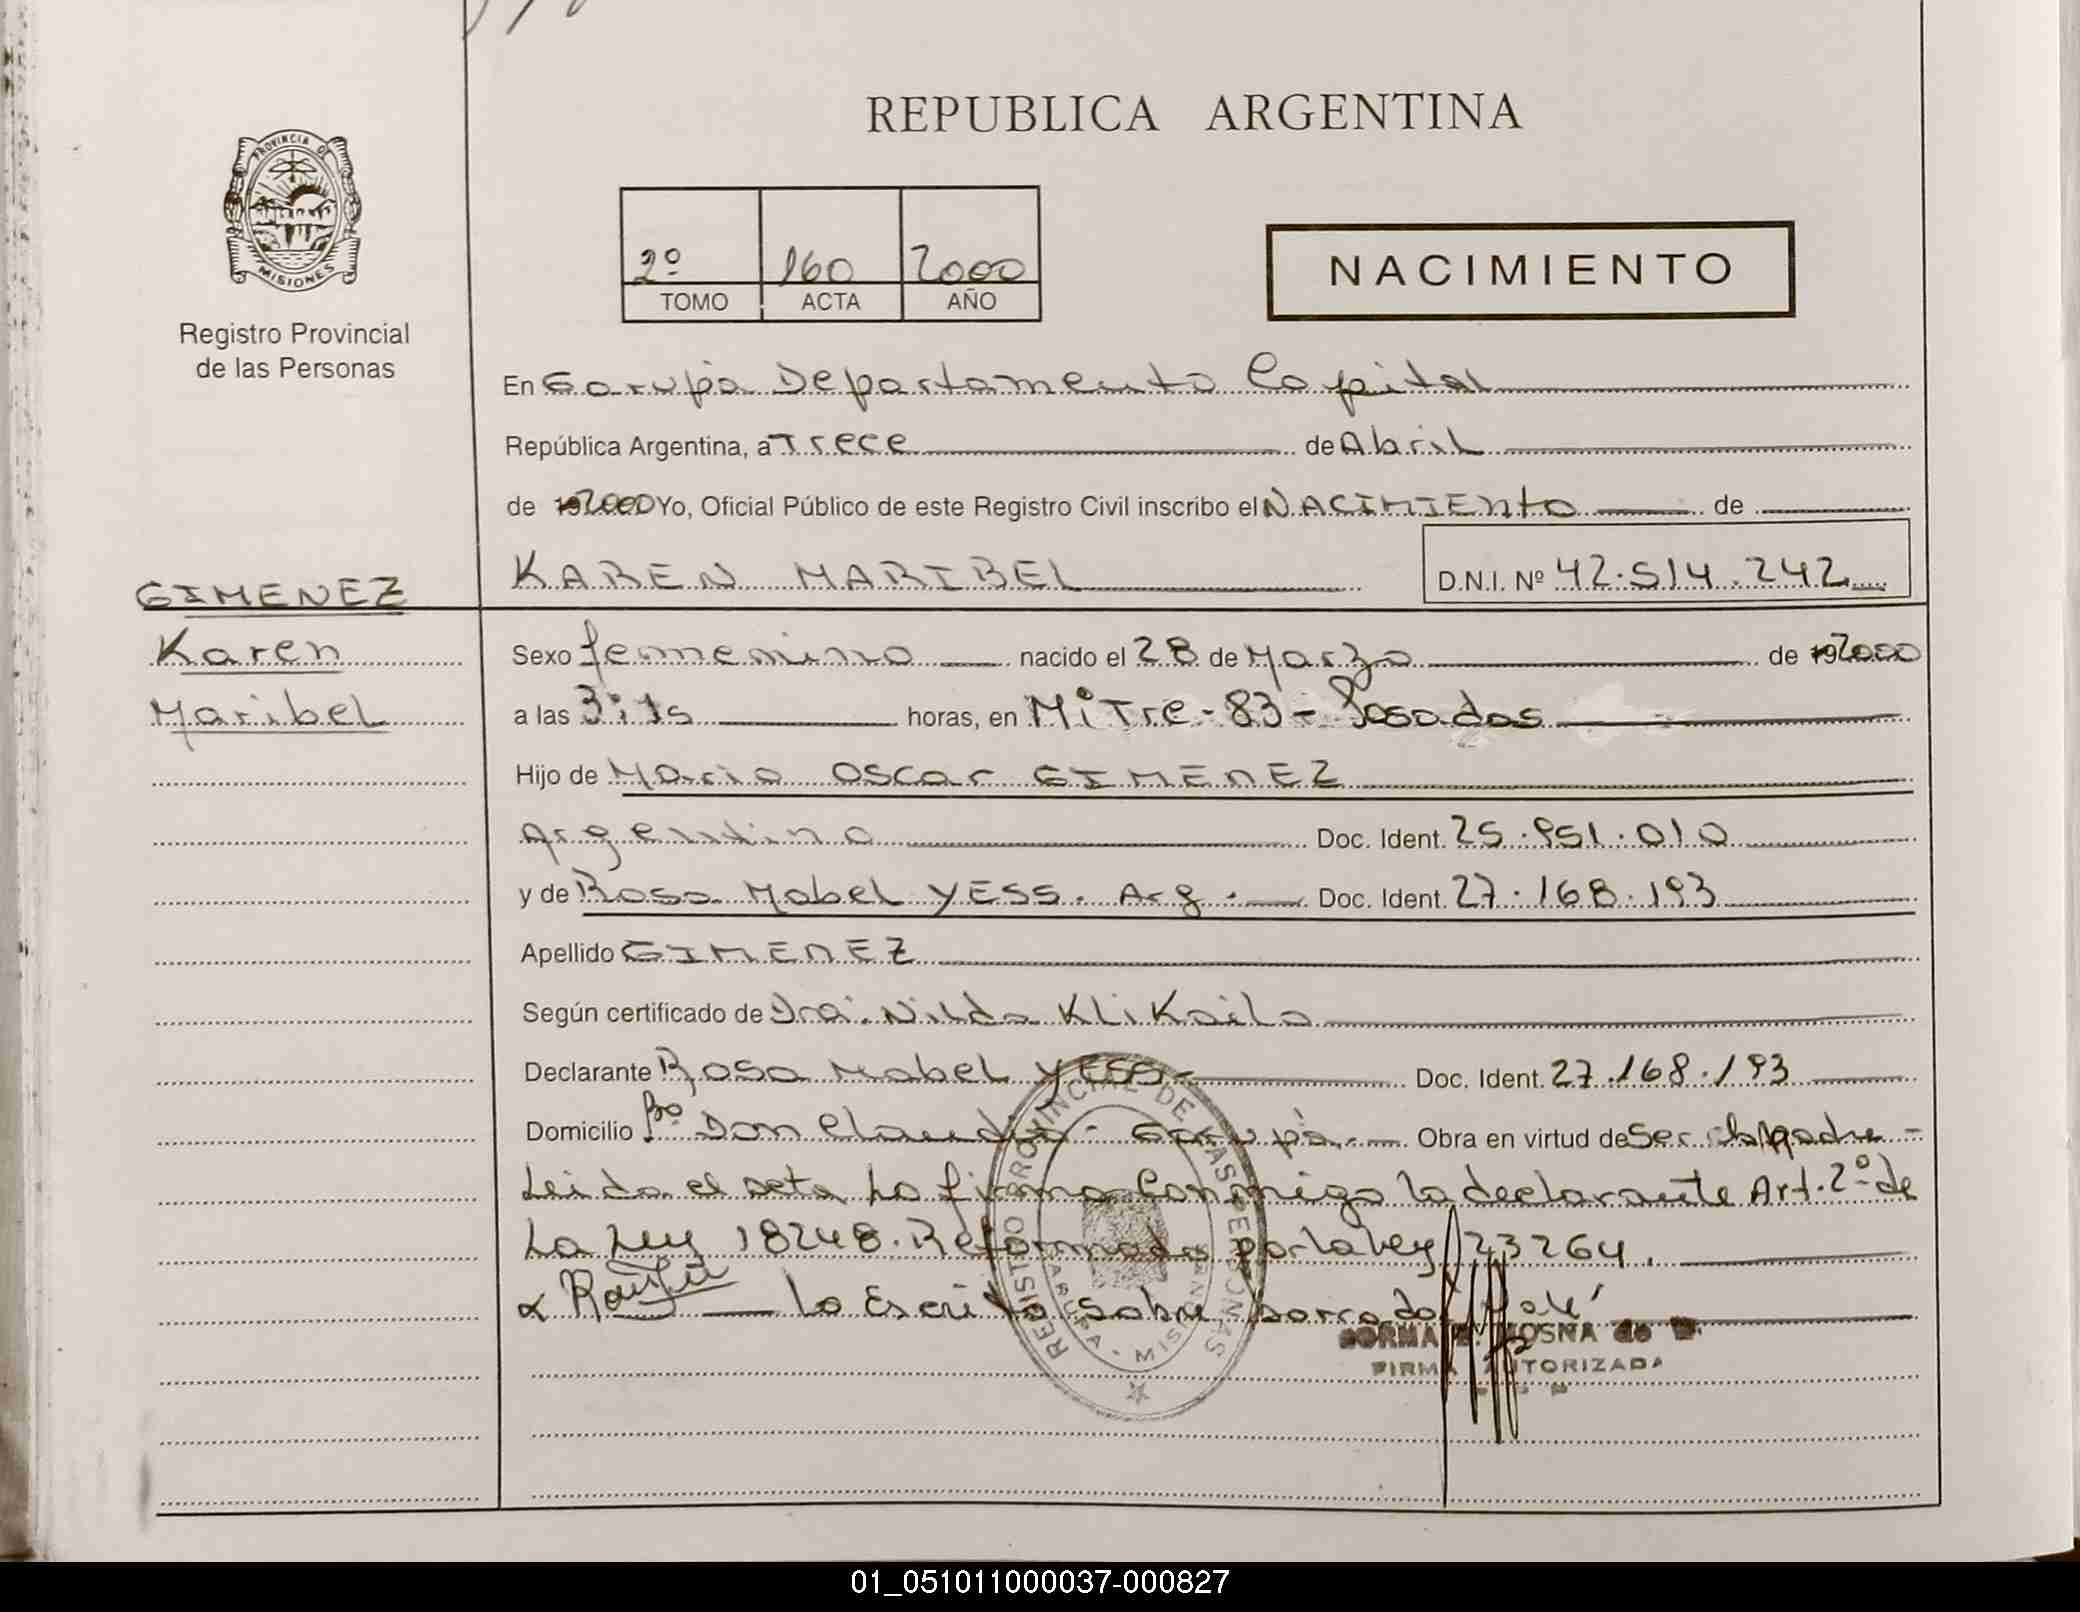 REPUBLICA ARGENTINA
PROVINCIA DE
MISIONES
Registro Provincial
de las Personas
2º 160 2000
TOMO ACTA AÑO
NACIMIENTO
En Garupá Departamento Capital
República Argentina, a Trece de Abril
de 2000 Yo, Oficial Público de este Registro Civil inscribo el NACIMIENTO de
KAREN MARIBEL D.N.I. Nº 42.514.242
GIMENEZ
Karen
Maribel
Sexo femenino nacido el 28 de Marzo de 192000
a las 3:15 horas, en Mitre - 83 - Posadas
Hijo de Mario Oscar GIMENEZ
Argentino Doc. Ident. 25.951.010
y de Rosa Mabel YESS. Arg. Doc. Ident. 27.168.193
Apellido GIMENEZ
Según certificado de Dra. Nilda Klikailo
Declarante Rosa Mabel YESS- Doc. Ident. 27.168.193
Domicilio Bº Don Claudio - Garupá. Obra en virtud de Ser la Madre -
Leida el acta La firma Conmigo la declarante Art. 2º de
La Ley 18248. Reformada por la Ley 23264.
Lo Escrito Sobre borrado Vale
REGISTRO PROVINCIAL DE LAS PERSONAS
GARUPA - MISIONES
NORMA MOSNA de
FIRMA AUTORIZADA
01_051011000037-000827